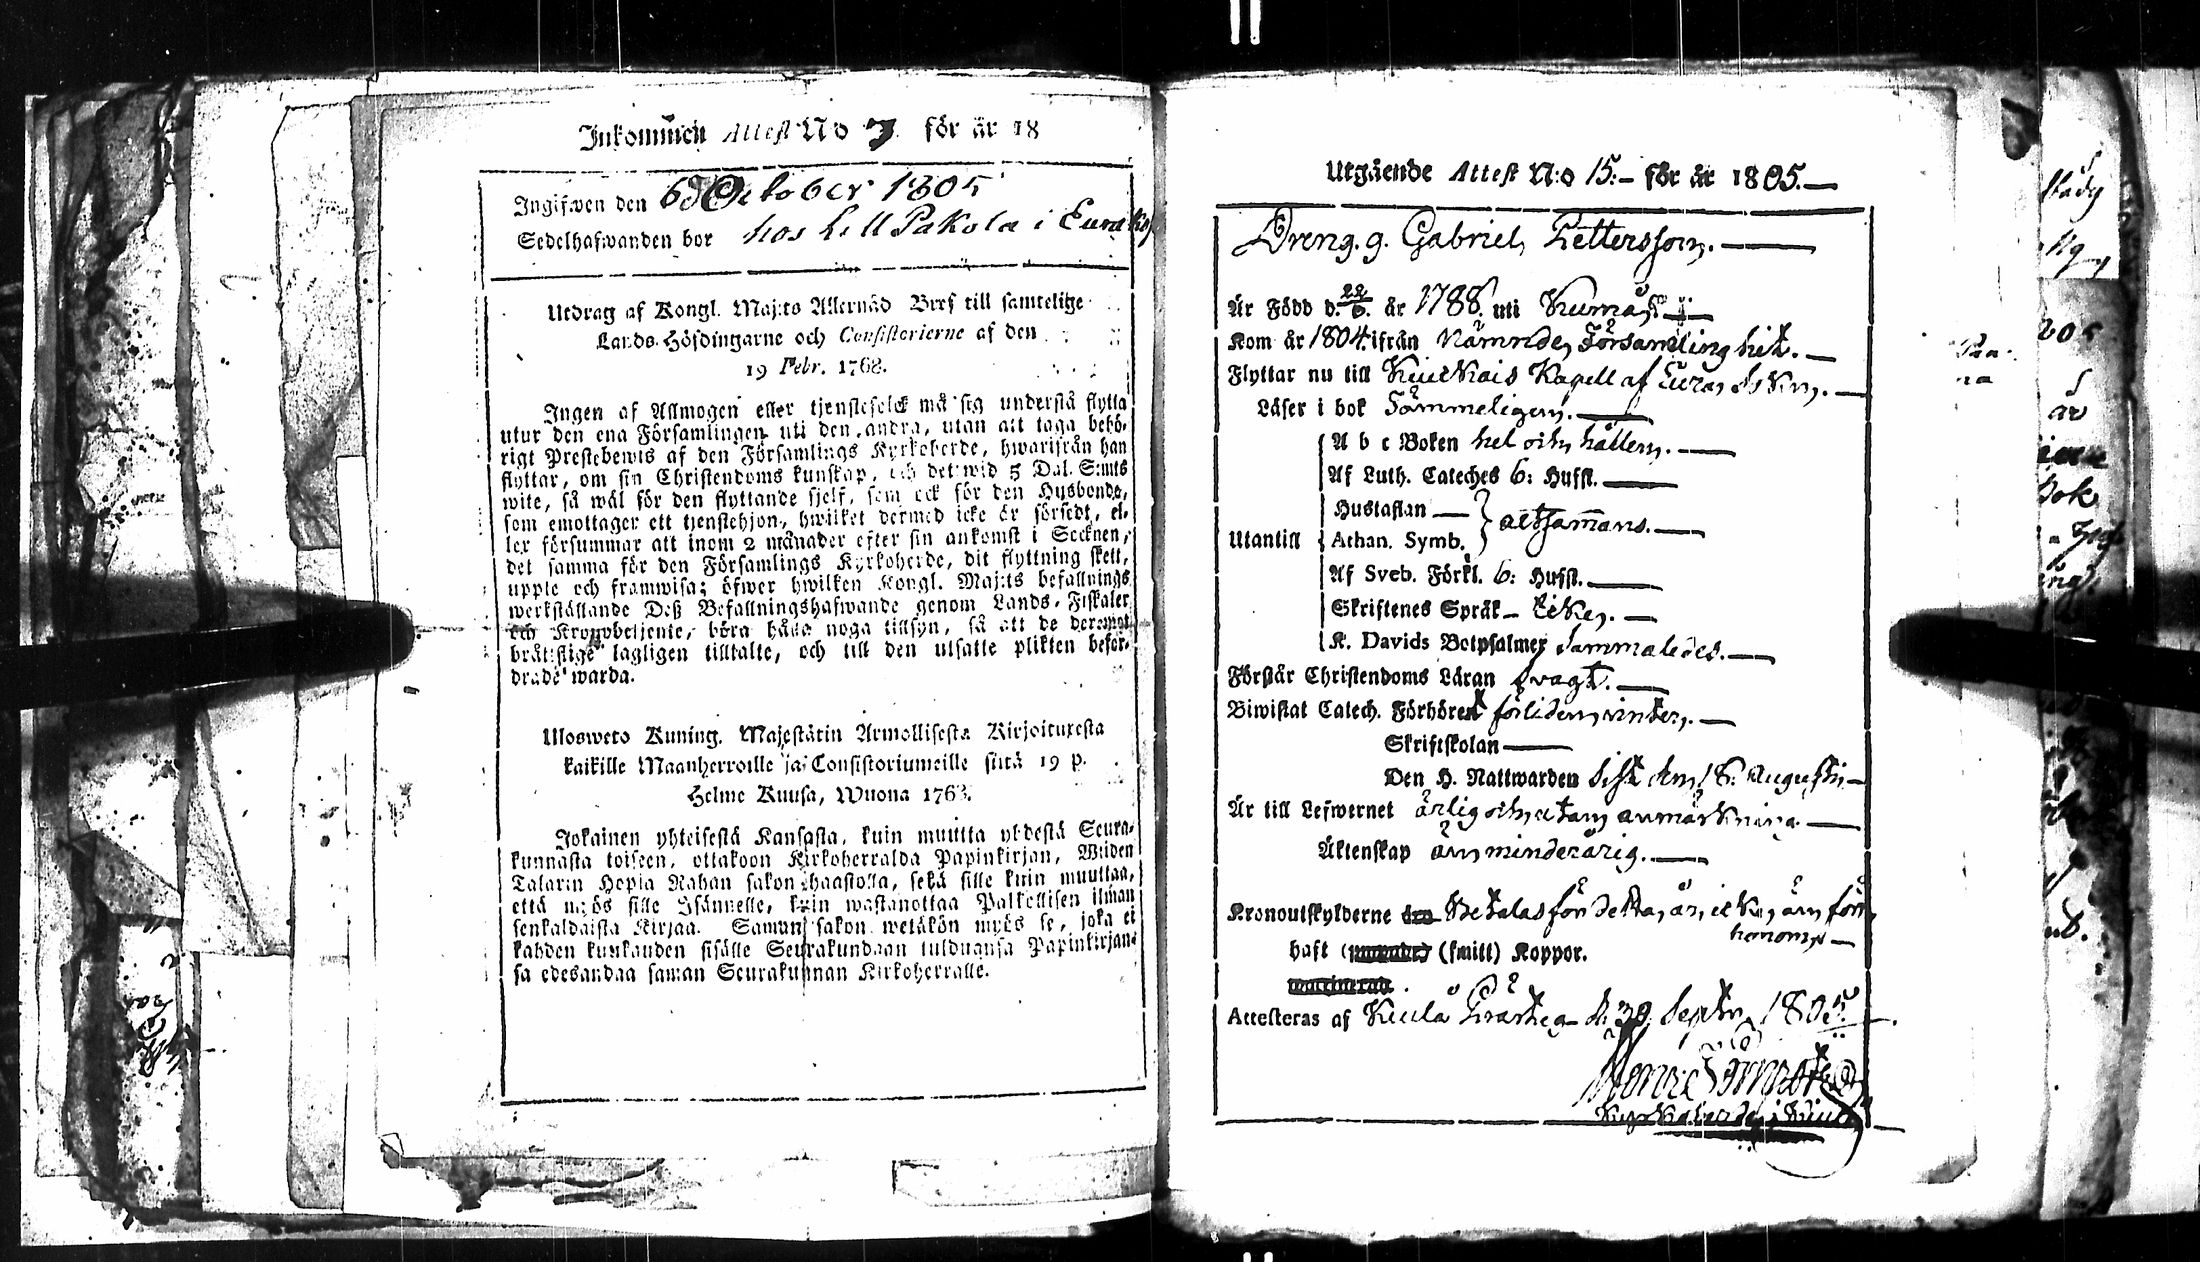 Inkommen Attest No 7. för år 18
Ingifwen den 6 October 1805
Sedelhafwanden bor hos Pakola i Eura
Utdrag af Kongl. Maj:ts Allernåd Bref till samtelige
Lands-Höfdingarne och Consistorierne af den
19 Febr. 1768.
Ingen af Allmogen eller tjenstefolck må sig understå flytta
utur den ena Församlingen uti den andra, utan att taga behö-
rigt Prestebewis af den Församlings Kyrkoherde, hwarifrån han
flyttar, om sin Christendoms kunskap, och det wid 5 Dal. S:mts
wite, så wäl för den flyttande sjelf, som ock för den Husbonde,
som emottager ett tjenstehjon, hwilket dermed icke är försedt, el-
ler försummar att inom 2 månader efter sin ankomst i Socknen,
det samma för den Församlings Kyrkoherde, dit flyttning skett,
uppte och framwisa; öfwer hwilken Kongl. Maj:ts befallnings
werkställande Deß Befallningshafwande genom Lands-Fiskaler
och Kronobetjente, böra hålla noga tillsyn, så att de deremot
bråttslige lagligen tilltalte, och till den utsatte plikten beför-
drade warda.
Ulosweto Kuning. Majestätin Armollisesta Kirjoituxesta
kaikille Maanherroille ja Consistoriumeille siitä 19 p.
Helme Kuusa, Wuona 1763.
Jokainen yhteisestä Kansasta, kuin muutta yhdestä Seura-
kunnasta toiseen, ottakoon Kirkoherralda Papinkirjan, Wiiden
Talarin Hopia Rahan sakon haastolla, sekä sille kuin muuttaa,
että myös sille Isännelle, kuin wastanottaa Palkollisen ilman
senkaldaista Kirjaa. Saman sakon wetäkön myös se, joka ei
kahden kuukauden sisälle Seurakundaan tulduansa Papinkirjan-
sa edesandaa saman Seurakunnan Kirkoherralle.
Utgående Attest N:o 15.- för år 1805.
Dreng. g. Gabriel Pettersson.
Är Född d. 22/6. år 1788. uti Kumå
Kom år 1804. ifrån Nämnde Församling hit.
Flyttar nu till Kiukais Kapell af Eura Skn.
Läser i bok Sömmeligen.
A b c Boken hel och hållen.
Af Luth. Cateches 6: Hufst.
Hustaflan
altsammans.
Utantill Athan. Symb.
Af Sveb. Förkl. 6: Hufst.
Skriftenes Språk icke.
K. Davids Botpsalmer Sammaledes.
Förstår Christendoms Läran svagt.
Biwistat Catech. Förhöret förliden vinter.
Skriftskolan
Den H. Nattwarden sist den 18. Augusti
Är till Lefwernet ärlig och utan anmärkning.
Äktenskap än minderårig.
Kronoutskylderne betalas för detta år, icke än för
honom
haft (smitt) Koppor.
Attesteras af Kiula Prästeg. d. 30 Septbr. 1805.
Kyrkoherde i Kiula